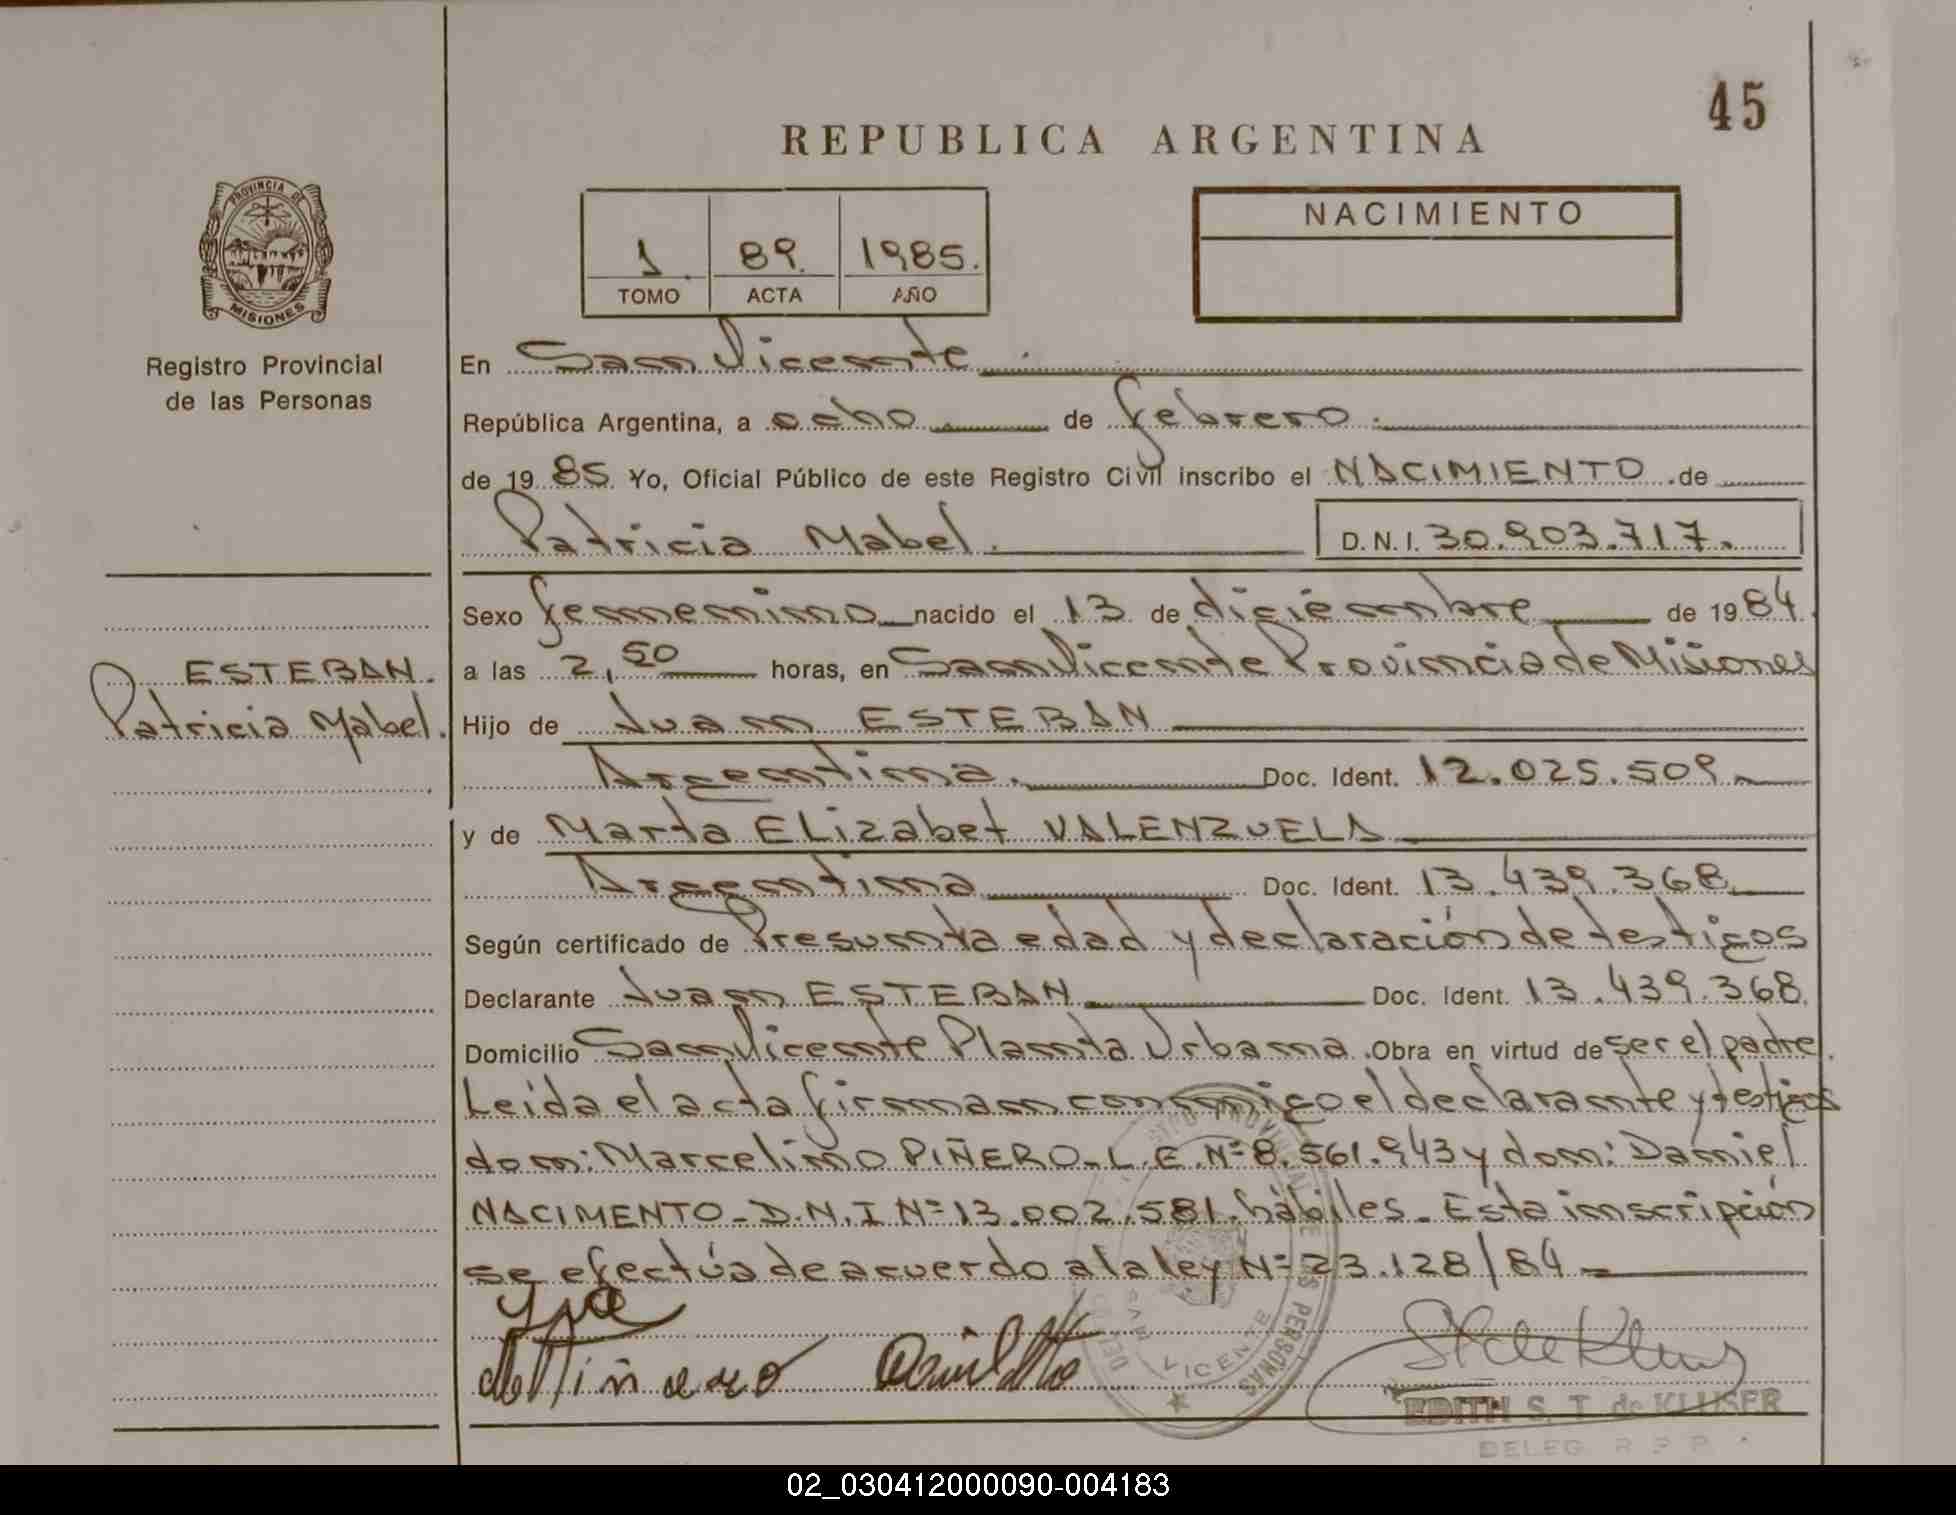 45
REPUBLICA ARGENTINA
PROVINCIA DE
MISIONES
Registro Provincial
de las Personas
1. 89. 1985.
TOMO ACTA AÑO
NACIMIENTO
En San Vicente
República Argentina, a ocho de febrero.
de 1985. Yo, Oficial Público de este Registro Civil inscribo el NACIMIENTO de
Patricia Mabel. D.N.I. 30.903.717.
Sexo femenino nacido el 13 de diciembre de 1984.
ESTEBAN.
Patricia Mabel.
a las 2,50 horas, en San Vicente Provincia de Misiones
Hijo de Juan ESTEBAN
Argentina. Doc. Ident. 12.025.509
y de Marta Elizabet VALENZUELA
Argentina Doc. Ident. 13.439.368
Según certificado de Presunta edad y declaración de testigos
Declarante Juan ESTEBAN Doc. Ident. 13.439.368.
Domicilio San Vicente Planta Urbana. Obra en virtud de ser el padre.
Leida el acta firman conmigo el declarante y testigos
don: Marcelino PIÑERO - L.E. Nº 8.561.943 y don: Daniel
NACIMENTO - D.N.I Nº 13.002.581. hábiles. Esta inscripción
se efectúa de acuerdo a la ley Nº 23.128/84
VICENTE
PERSONAS
EDITH S. T. de KLUSER
DELEG. R. P. P.
02_030412000090-004183